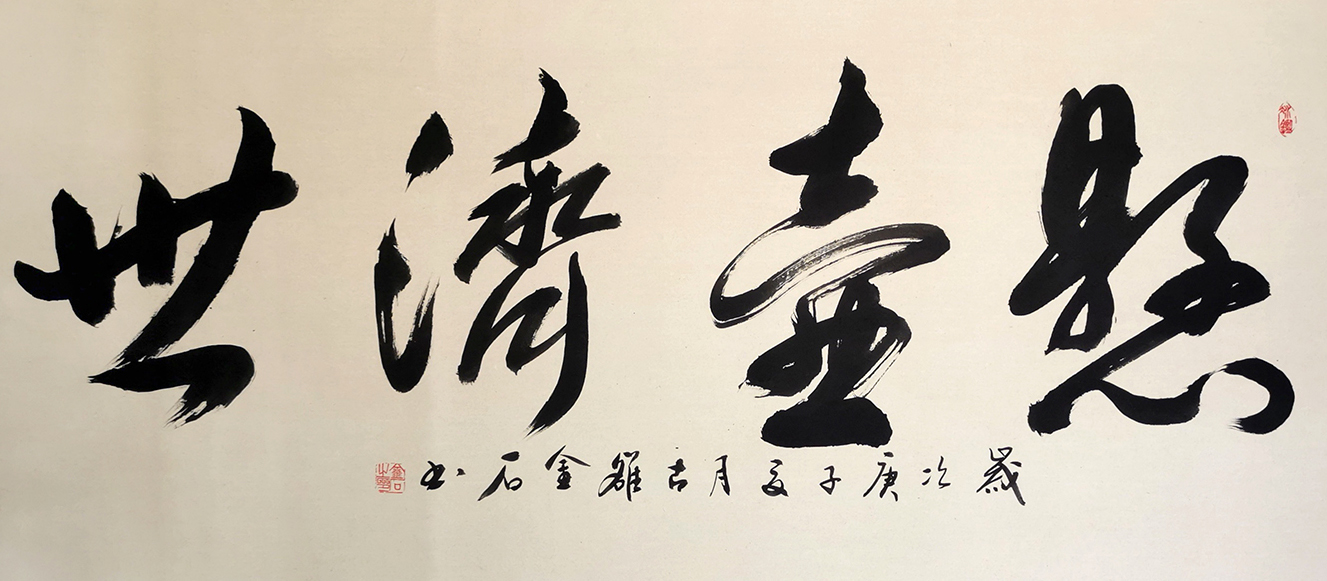 懸壺濟世
歲次庚子夏月古雒金石书